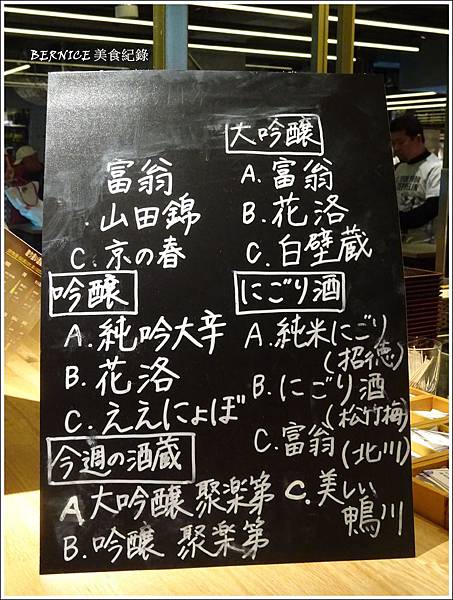 BERNICE 美食紀錄
富翁
. 山田錦
C. 京の春
吟醸
A. 純吟大辛
B. 花洛
C. ええにょぼ
今週の酒蔵
A 大吟醸 聚楽第
B. 吟醸 聚楽第
大吟醸
A. 富翁
B. 花洛
C. 白壁蔵
にごり酒
A. 純米にごり
(招徳)
B. にごり酒
(松竹梅)
C. 富翁 (北川)
C. 美しい
鴨川